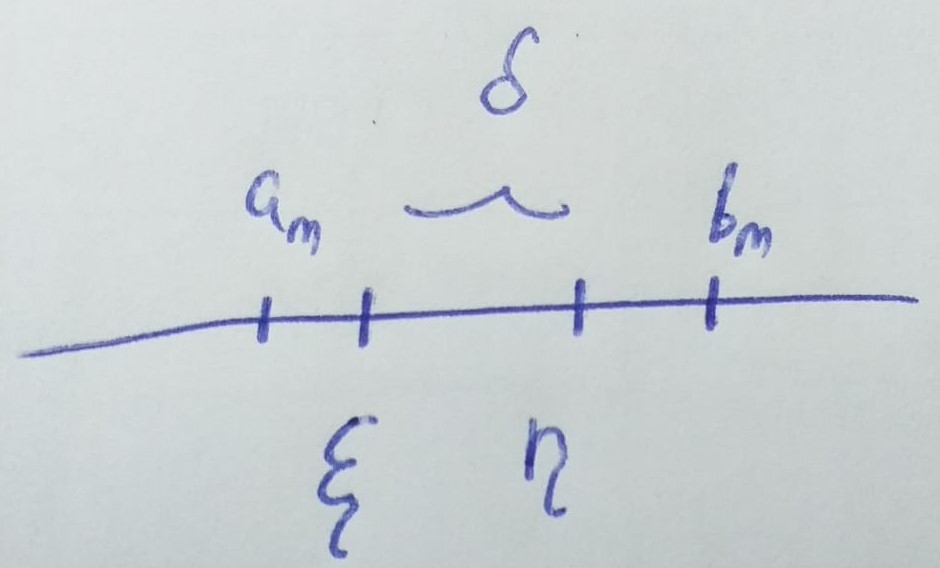 δ
a_m b_m
ξ η